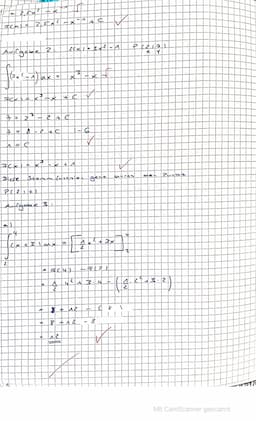 Aufgabe 2   f(x) = 3x² - 1   P(2|7)
x y
∫(3x² - 1) dx = x³ - x
F(x) = x³ - x + C
7 = 2³ - 2 + C
7 = 8 - 2 + C   | - 6
1 = C
F(x) = x³ - x + 1
Diese Stammfunktion geht durch den Punkt
P(2|7)
Aufgabe 3
a)
∫(x + 3) dx = [1/2 x² + 3x]
= F(4) - F(2)
= 1/2 4² + 3·4 - (1/2 2² + 3·2)
= 8 + 12 - 8
= 12
Mit CamScanner gescannt